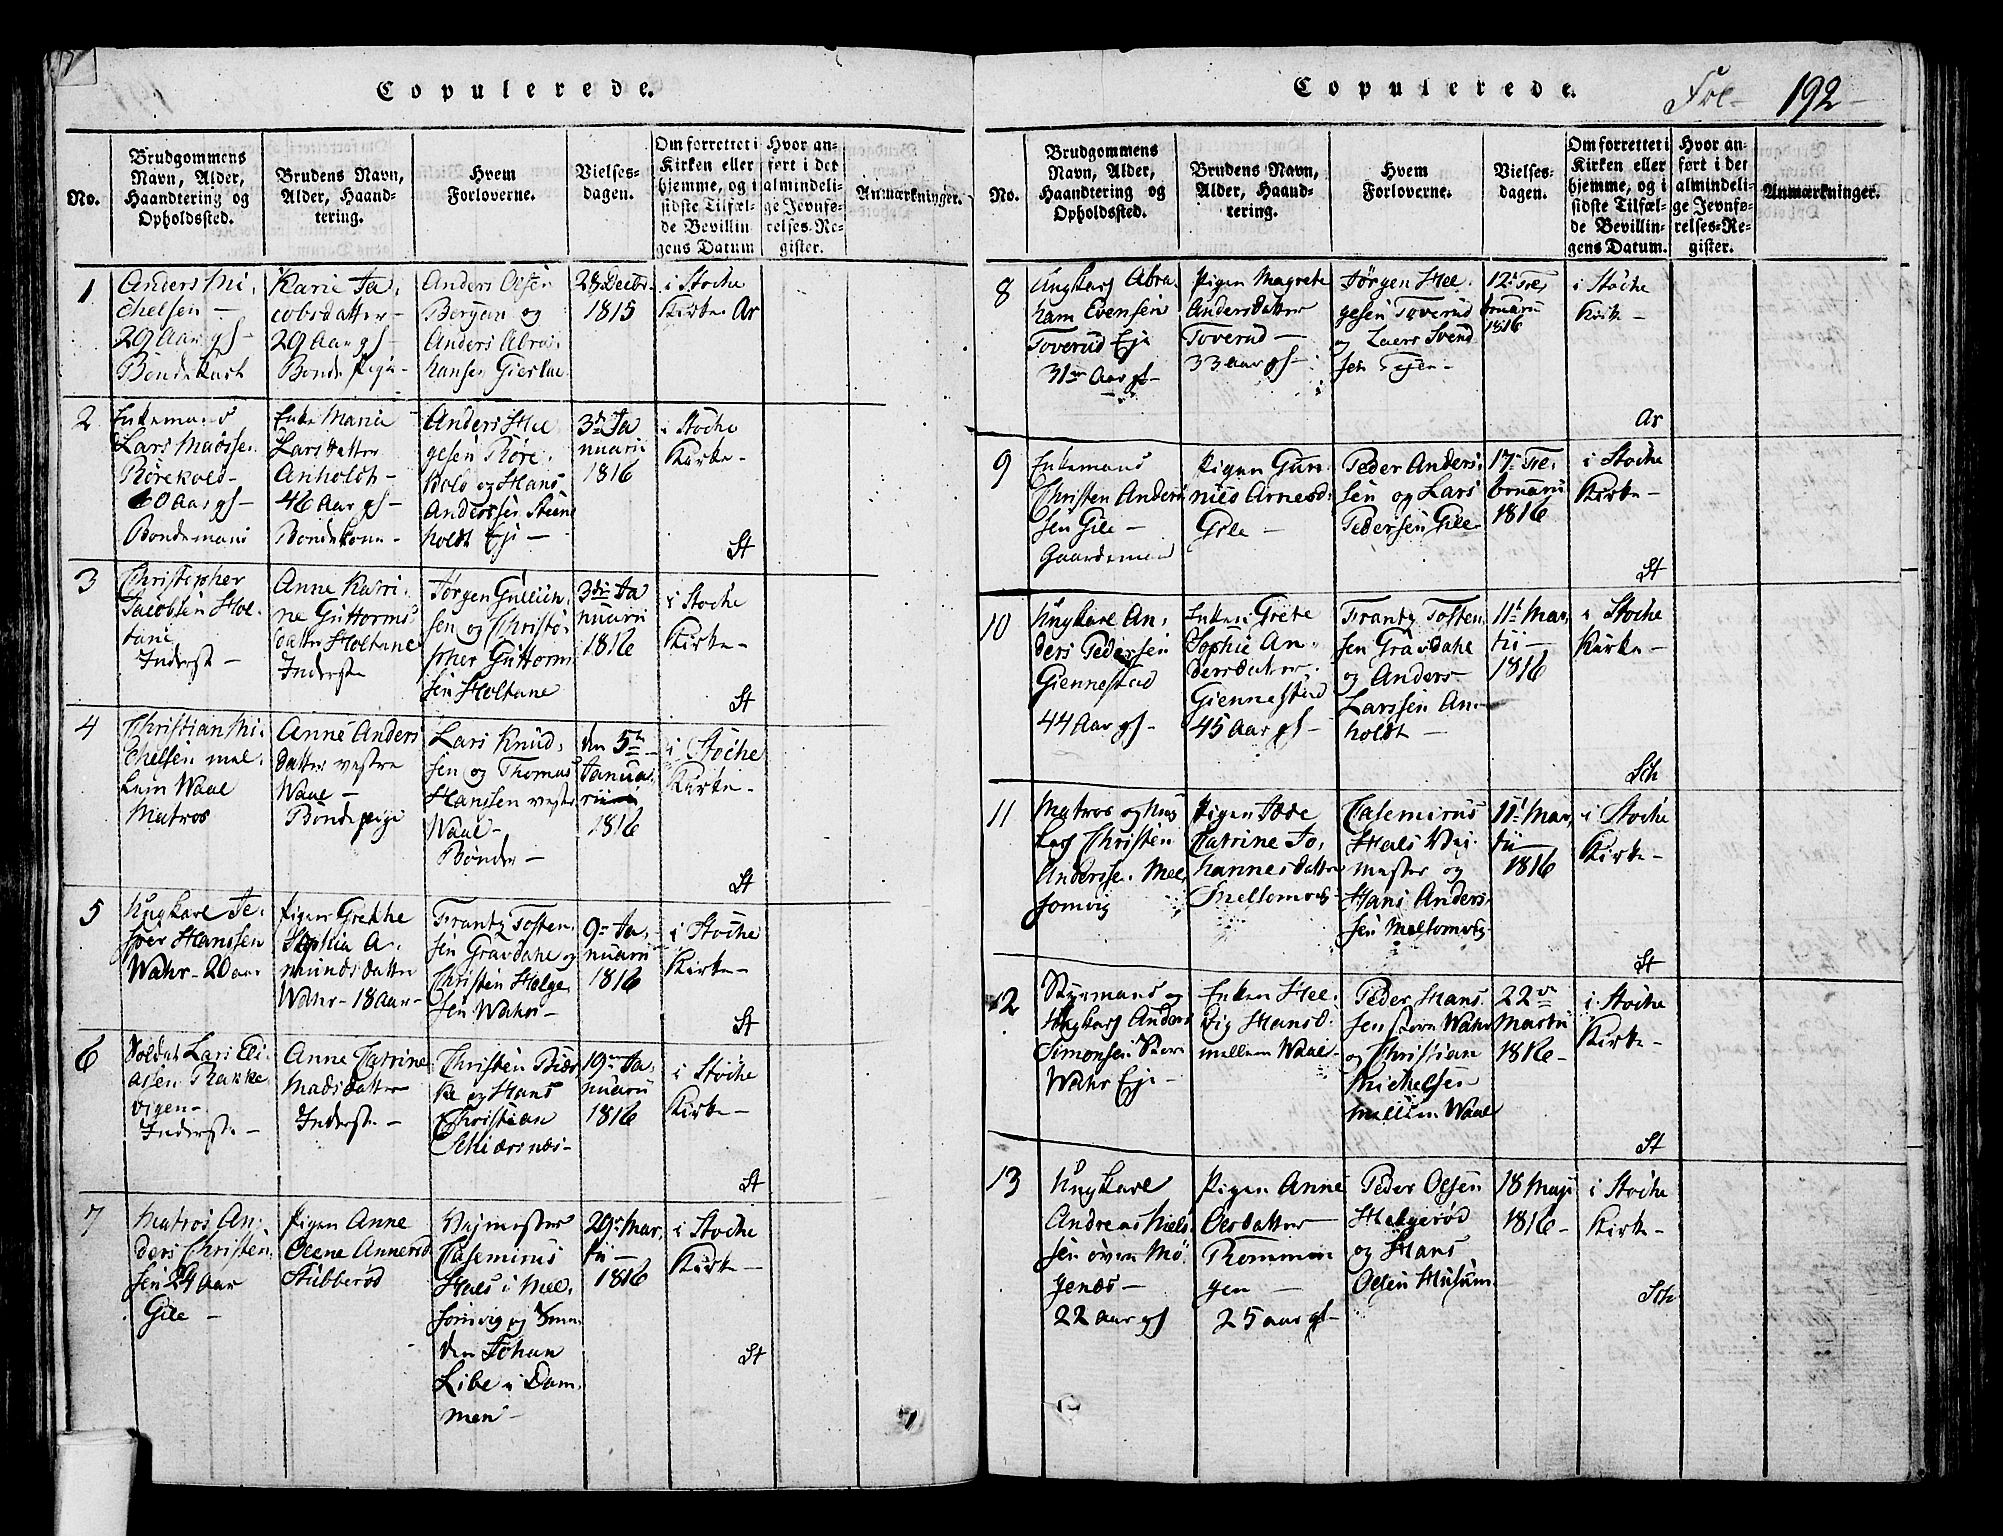 Copulerede.
No.
Brudgommens
Navn, Alder,
Haandtering og
Opholdssted.
Brudens Navn,
Alder, Haand-
tering.
Hvem
Forloverne.
Vielses-
dagen.
Om forrettet i
Kirken eller
hjemme, og i
sidste Tilfæl-
de Bevillin-
gens Datum
Hvor an-
ført i det
almindeli-
ge Jevnfø-
relses-Re-
gister.
Anmærkninger.
1
Anders Mi,
chelsen —
29 Aar gl —
Karie Ja,
cobsdatter —
29 Aar gl —
Bonde Pige —
Anders Olsen
Bergan og
Anders Abra,
hansen
28 Decbr.
1815
i Stoche
Kirke Ar
2
Enkemand
Lars
60 Aar gl —
Bondemand
Enke Marie
Larsdatter
Anholdt —
46 Aar gl —
Bondekone —
Anders Hel
gesen Røre,
kold og Hans
Anderssen Steene
holdt Eje —
3die Ja
nuarii
1816
i Stoche
Kirke —
St
3
Christopher
Jacobsen Hol,
tane
Inderst —
Anne Katri,
ne Guttorms
datter Holtane
Inderste
Jørgen
sen og Christo,
pher Guttorm
sen Holtane
3die Ja
nuarii
1816
i Stoche
Kirke —
St
4
Christian Mi,
chelsen mel,
lem Waae
Matros
Anne Anders
datter vestre
Waae —
Bondepige
Lars Knud,
sen og Thomas
Hanssen vestre
Waae —
Bønder —
den 5te
Januar
1816
i Stoche
Kirke —
St
5
Ungkarl Je,
sper Hanssen
Wahr — 20 aar
Pigen Grethe
Sophia A,
munds datter
Wahr — 18 aar —
Frantz Toften,
sen Gravdahl og
Christen Helge,
sen Wahr —
9de Ja,
nuarii
1816
i Stoche
Kirke —
St
6
Soldat Lars Eli
assen Rakke,
vigen —
Inderste —
Anne Catrine
Madsdatter
Inderste —
Christen
ke og Hans
Christian
Schiærsnæs —
19de Ja,
nuarii
1816
i Stoche
Kirke —
St
7
Matros An,
ders Christen,
sen 24 aar
Gile —
Pigen Anne
Olene Annersd
Stubberød
Vejmester
Casemirus
Hals i Mel,
somvig og
den Johan
Libe i Dam,
men —
29de Mar,
tii —
1816
i Stoche
Kirke —
St
Copulerede.
Fol — 192 —
No.
Brudgommens
Navn, Alder,
Haandtering og
Opholdssted.
Brudens Navn,
Alder, Haand-
tering.
Hvem
Forloverne.
Vielses-
dagen.
Om forrettet i
Kirken eller
hjemme, og i
sidste Tilfæl-
de Bevillin-
gens Datum.
Hvor an-
ført i det
almindeli-
ge Jevnfø-
relses-Re-
gister.
Anmærkninger.
8
Ungkarl Abra,
ham Evensen
Toverud Eje
31 Aar gl —
Pigen Magrete
Andersdatter
Toverud —
33 aar gl —
Jørgen Hel,
gesen Toverud
og Laers Svend
sen
12te Fe,
bruarii
1816
i Stoche
Kirke —
Ar
9
Enkemand
Christen Anders
sen Gile —
Gaardemand
Pigen Gun,
nild Arnesd:
Gile —
Peder Anders,
sen og Lars
Pedersen Gile
17de Fe,
bruarii
1816
i Stoche
Kirke —
St
10
Ungkarl An,
ders Pedersen
Giennestad
44 Aar gl —
Enken Grete
Sophie An,
dersdatter,
Giennestad
45 aar gl —
Frantz Toften
sen Gravdahl
og Anders
Larssen An,
holdt —
11te Mar,
tii —
1816
i Stoche
Kirke —
Sch
11
Matros og Ung
karl Christen
Anderssen Mel,
somvig
Pigen
Catrine Jo,
hannesdatter
Mellomvig
Casemirus
Hals Vei,
mester og
Hans Anders,
sen Melsomvig
11te Mar,
tii —
1816
i Stoche
Kirke —
St
12
Styrmand og
Ungkarl Anders
Simonsen Store
Wahr Eje —
Enken Hel,
vig Hansd:
mellem Waae —
Peder Hans,
sen Store Wahr
og Christian
Michelsen
mellem Waae
22de
Martii
1816 —
i Stoche
Kirke —
St
13
Ungkarl
Andreas Niels
sen øvre Mø,
genæs —
22 aar gl
Pigen Anne
Olsdatter
Rommen
gen —
25 aar gl —
Peder Olsen
Helgerød
og Hans
Olsen Husum
18 Maji
1816 —
i Stoche
Kirke —
Sch